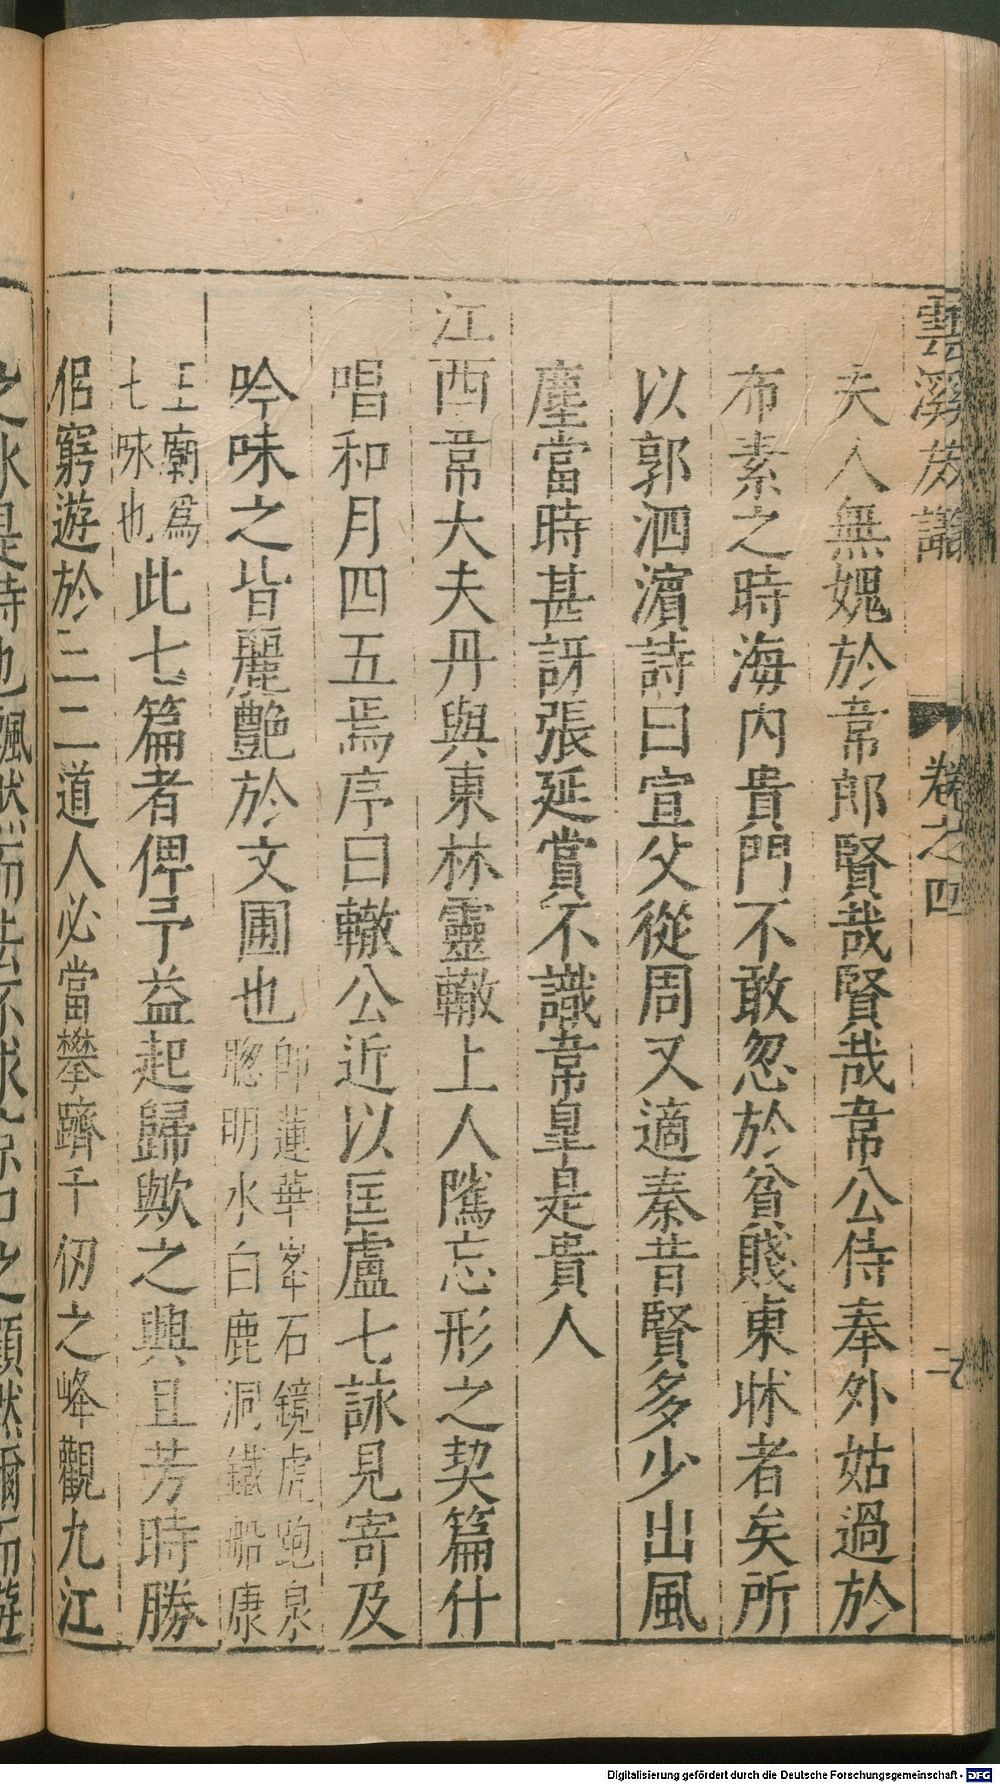 雲溪友議 卷之四
夫人無媿於韋郎賢哉賢哉韋公侍奉外姑過於
布素之時海内貴門不敢忽於貧賤東牀者矣所
以郭泗濵詩曰宣父從周又適秦昔賢多少出風
塵當時甚訝張延賞不識韋臯是貴人
江西韋大夫丹與東林靈轍上人隲忘形之契篇什
唱和月四五焉序曰轍公近以匡盧七詠見寄及
吟味之皆麗艶於文圃也
師蓮華峯石鏡虎跑泉
聰明水白鹿洞鐵船康
王廟爲
七咏也
此七篇者俾予益起歸歟之興且芳時勝
侶窮遊於三二道人必當攀躋千仞之峰觀九江
之水是時也飄然而去不求京口之顧然爾而遊
Digitalisierung gefördert durch die Deutsche Forschungsgemeinschaft - DFG